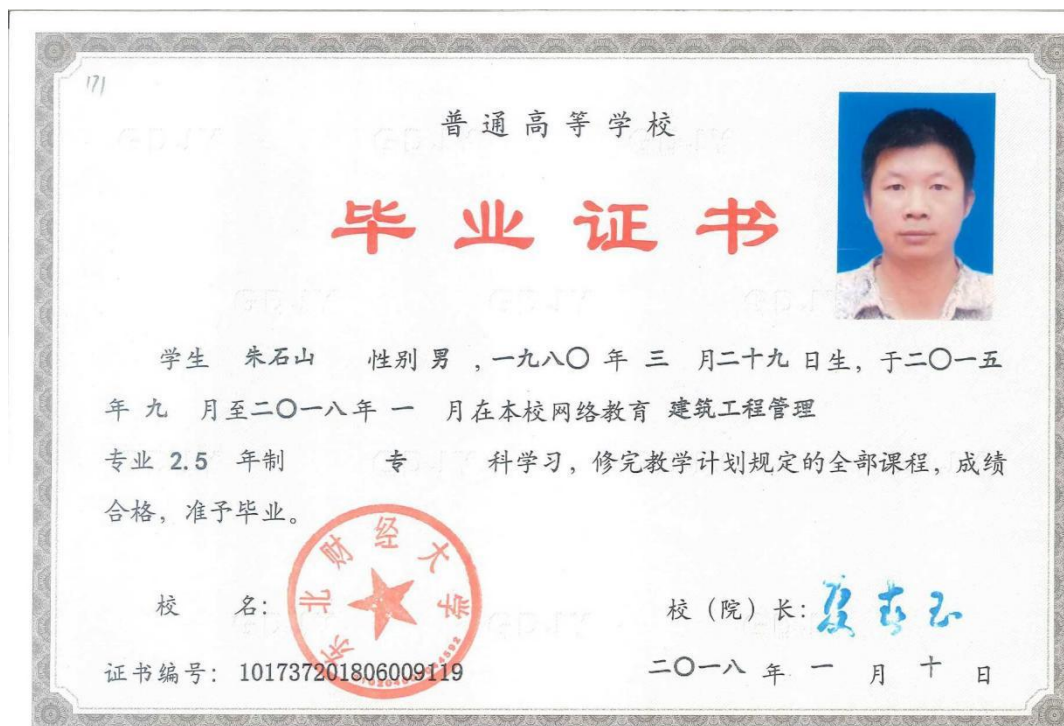 171
普通高等学校
毕业证书
学生 朱石山 性别 男 ,一九八〇 年 三 月二十九 日生, 于二〇一五
年 九 月至二〇一八年 一 月在本校网络教育 建筑工程管理
专业 2.5 年制 专 科学习, 修完教学计划规定的全部课程, 成绩
合格, 准予毕业。
东北财经大学
校 名:
校(院)长: 夏春玉
证书编号: 101737201806009119
二〇一八 年 一 月 十 日